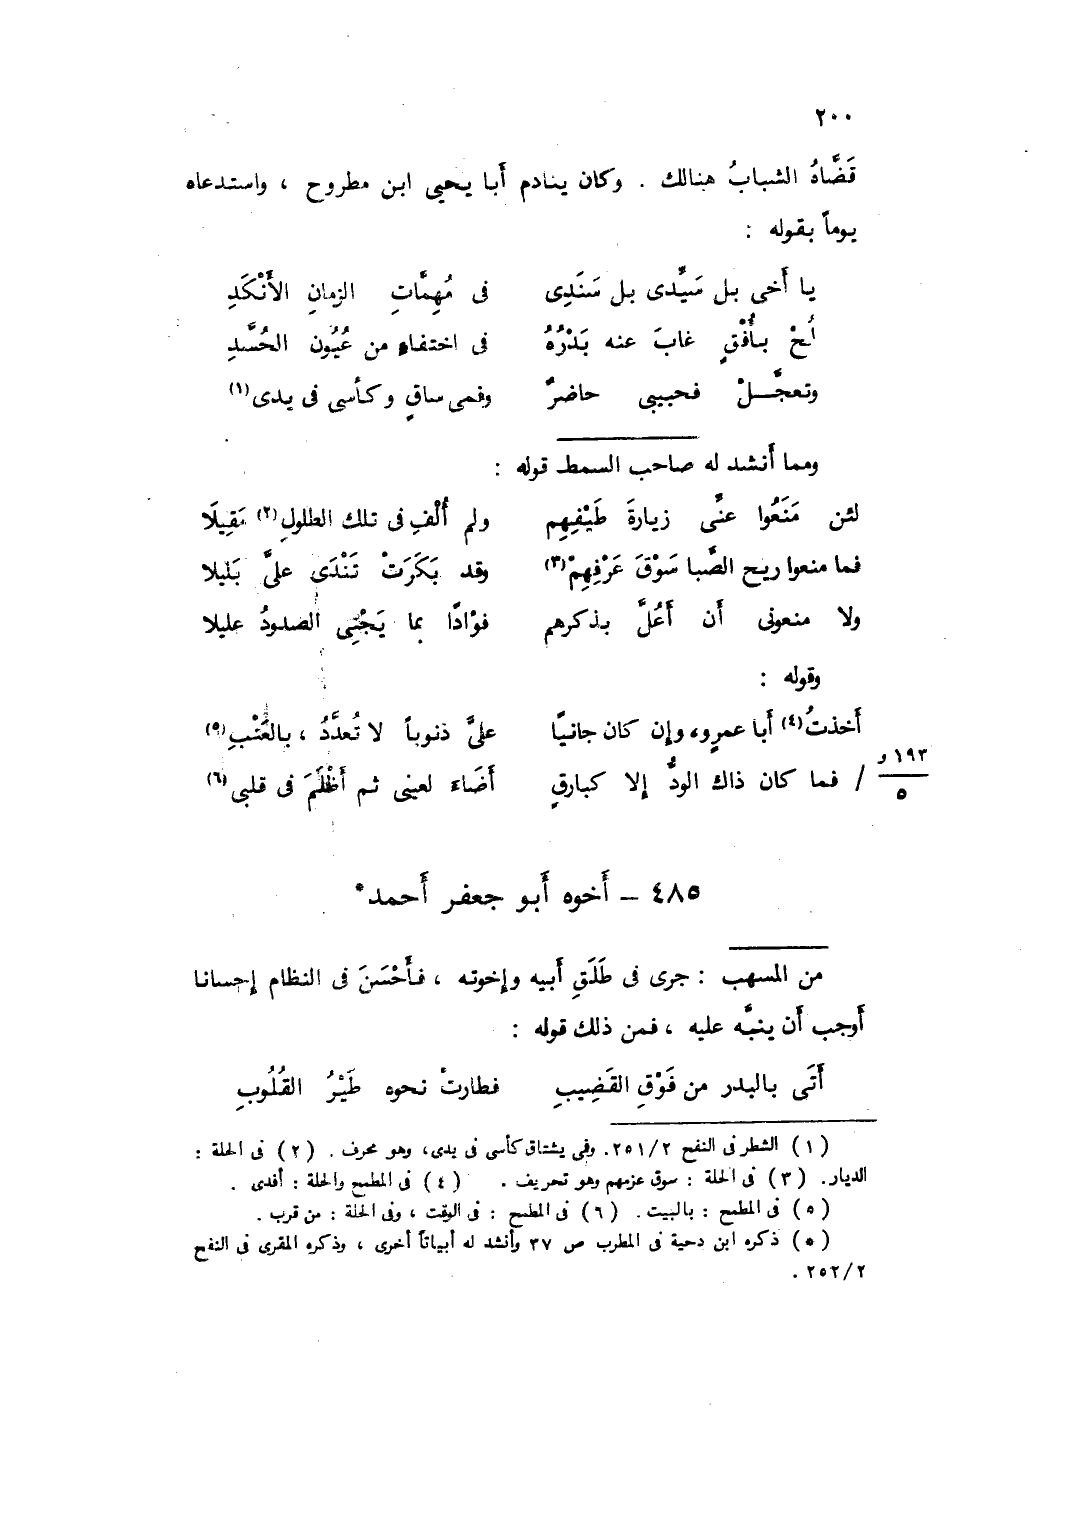 ٢٠٠
قَضَّاهُ الشبابُ هنالك . وكان ينادم أَبا يحيى ابن مطروح ، واستدعاه
يوماً بقوله :
يا أَخى بل سَيِّدى بل سَنَدِى فى مُهِمَّاتِ الزمانِ الأَنْكَدِ
لُحْ بأُفْقٍ غابَ عنه بَدْرُهُ فى اختفاءٍ من عُيُون الحُسَّدِ
وتعجَّــلْ فحبيبى حاضرٌ وفمى ساقٍ وكأسى فى يدى(١)
ومما أَنشد له صاحب السمط قوله :
لئن مَنَعُوا عنِّى زيارةَ طَيْفِهِم ولم أُلْفِ فى تلك الطلولِ(٢) مَقِيلَا
فما منعوا ريح الصَّبا سَوْقَ عَرْفِهِمْ(٣) وقد بَكَرَتْ تَنْدَى علىَّ بَليلا
ولا منعونى أَن أُعَلَّ بذكرهم فؤادًا بما يَجْنِى الصدودُ عليلا
وقوله :
أَخذتُ(٤) أَبا عمرٍو، وإن كان جانيًا علىَّ ذنوباً لا تُعدَّدُ ، بالعَتْبِ(٥)
/ فما كان ذاك الودُّ إلا كبارقٍ أَضَاءَ لعينى ثم أَظْلَمَ فى قلبى(٦)
١٩٣ و
٥
٤٨٥ – أَخوه أَبو جعفر أَحمد*
من المسهب : جرى فى طَلَقِ أَبيه وإخوته ، فأَحْسَنَ فى النظام إحسانا
أَوجب أَن ينبَّه عليه ، فمن ذلك قوله :
أَتَى بالبدر من فَوْقِ القَضِيبِ فطارتْ نحوه طَيْرُ القُلُوبِ
(١) الشطر فى النفح ٢٥١/٢. وفى يشتاق كأسى فى يدى، وهو محرف . (٢) فى الحلة :
الديار. (٣) فى الحلة : سوق عزمهم وهو تحريف . (٤) فى المطمح والحلة : أفدى .
(٥) فى المطمح : بالبيت . (٦) فى المطمح : فى الوقت ، وفى الحلة : من قرب .
(*) ذكره ابن دحية فى المطرب ص ٣٧ وأنشد له أبياتاً أخرى ، وذكره المقرى فى النفح
٢٥٢/٢ .